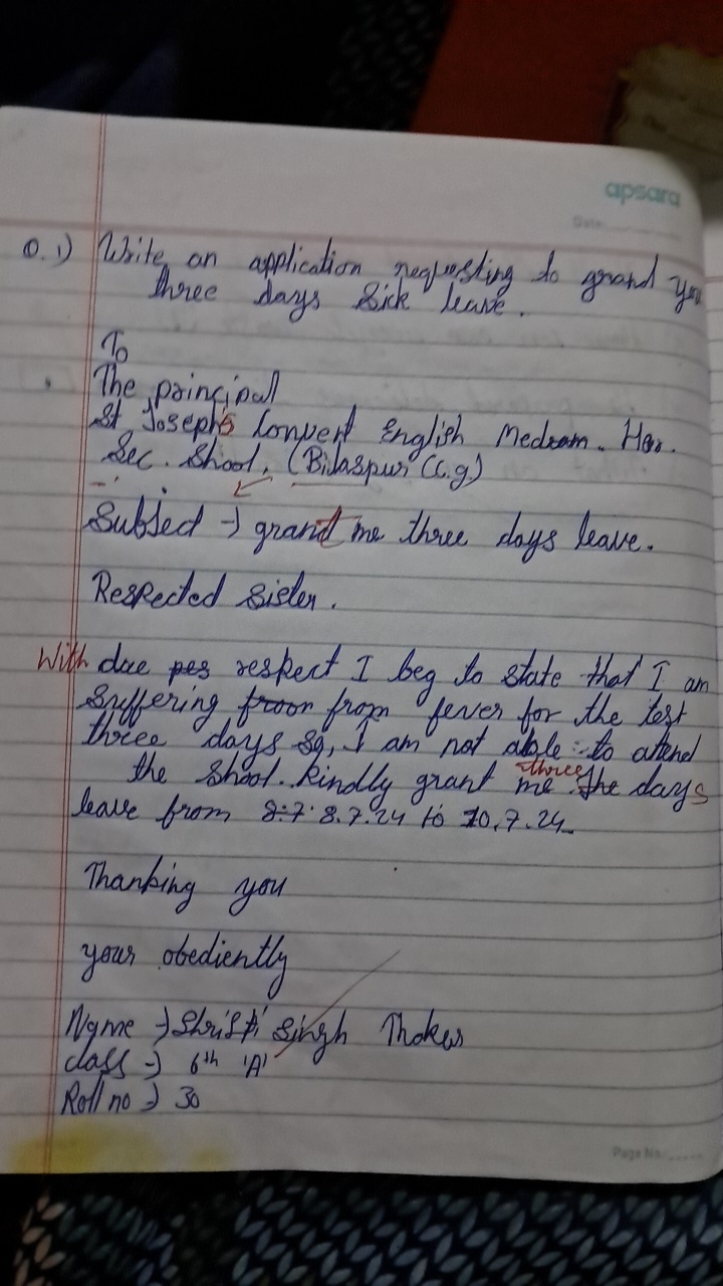 apsara
Date
Q.1) Write an application requesting to grand you
three days sick leave.
To
The principal
St Josephs Convert English Medium. Her.
Sec. Shool, (Bilaspur (C.g.)
Subjed → grant me three days leave.
Respected Sister.
With due pes respect I beg to state that I am
suffering froon from fever for the test
three days so, I am not able to attend
the Shool. kindly grant me three the days
leave from 8.7. 8.7.24 to 10.7.24
Thanking you
your obediently
Name → Shristi Singh Thaker
class → 6th 'A'
Roll no → 30
Page No.